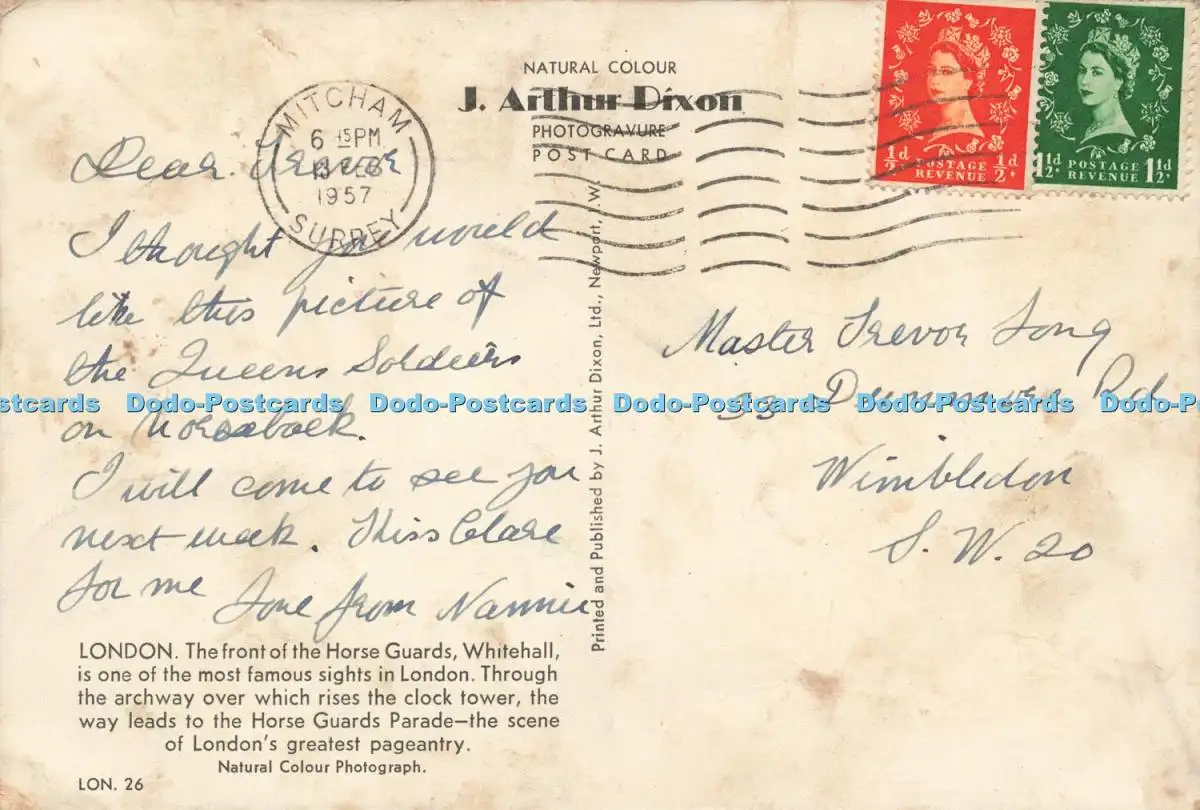 NATURAL COLOUR
J. Arthur Dixon
PHOTOGRAVURE
POST CARD
MITCHAM
6 15PM
13 FEB
1957
SURREY
½d POSTAGE REVENUE ½d
1½d POSTAGE REVENUE 1½d
Dear Trevor
I thought you would
like this picture of
the Queens Soldiers
on horseback.
I will come to see you
next week. Kiss Clare
for me
Love from Nannie
Master Trevor Long
Rd
Wimbledon
S. W. 20
Printed and Published by J. Arthur Dixon, Ltd., Newport, I.W.
LONDON. The front of the Horse Guards, Whitehall,
is one of the most famous sights in London. Through
the archway over which rises the clock tower, the
way leads to the Horse Guards Parade—the scene
of London's greatest pageantry.
Natural Colour Photograph.
LON. 26
stcards Dodo-Postcards Dodo-Postcards Dodo-Postcards Dodo-Postcards Dodo-Post